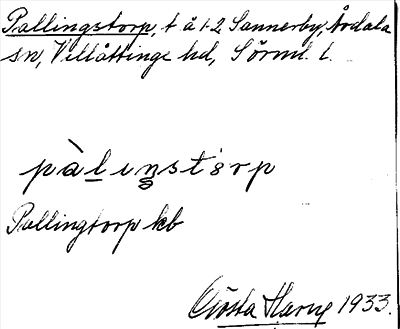 Pallingstorp, t å 1-2, Sannerby, Årdala
sn, Villåttinge hd, Sörml. l.
pàlıŋstorp
Pallingtorp kb
Gösta Harne 1933.